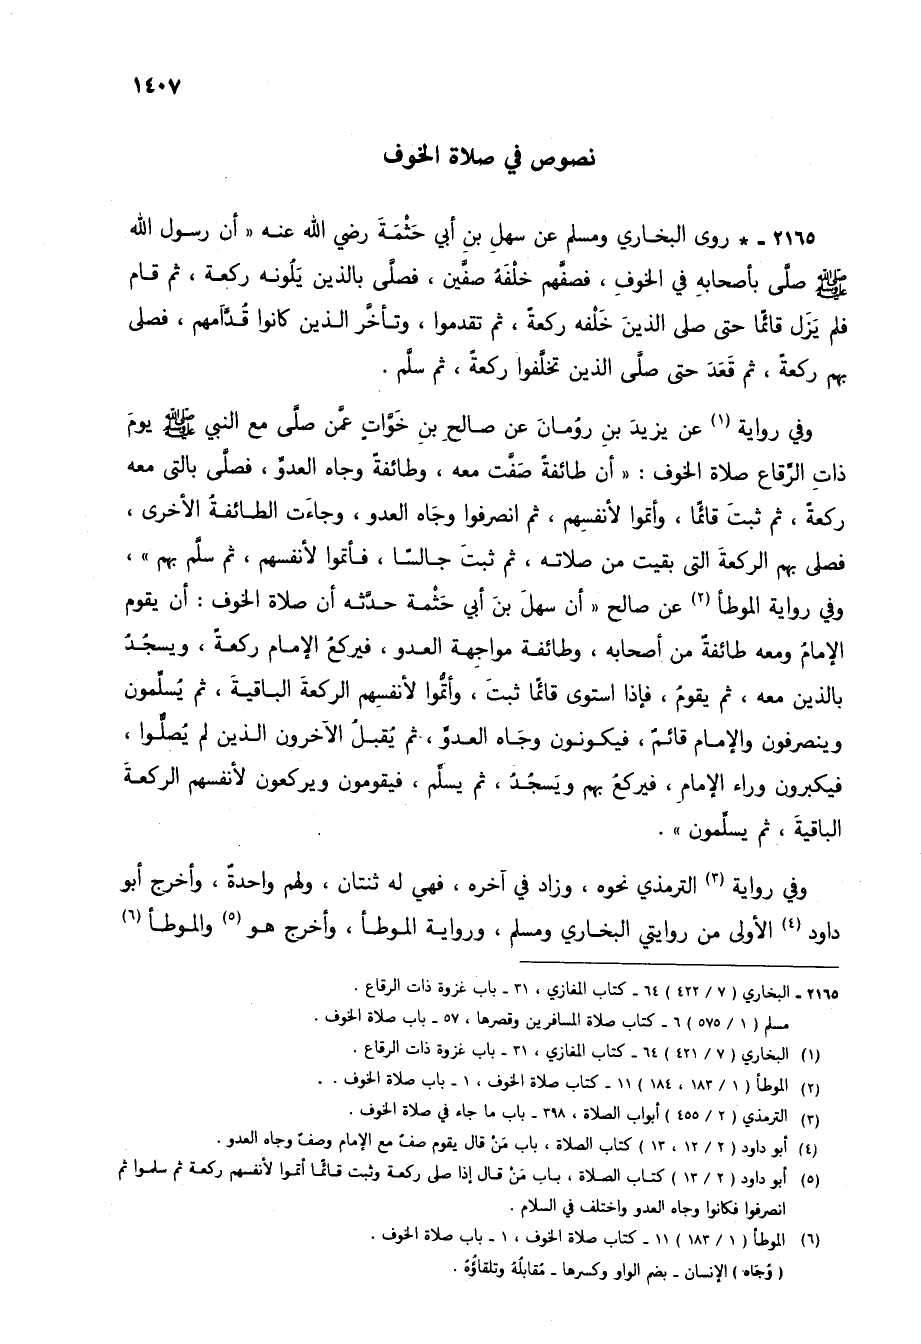 ١٤٠٧
نصوص في صلاة الخوف
٢١٦٥ ـ * روى البخاري ومسلم عن سهلِ بنِ أبي حَثْمَةَ رضي الله عنه « أن رسول الله
ﷺ صلَّى بأصحابهِ في الخوفِ ، فصفَّهم خلْفَهُ صفَّين ، فصلَّى بالذين يَلُونه ركعة ، ثم قام
فلم يَزَل قائمًا حتى صلى الذينَ خَلْفه ركعةً ، ثم تقدموا ، وتأخَّر الذين كانوا قُدَّامهم ، فصلى
بهم ركعةً ، ثم قَعَدَ حتى صلَّى الذين تخلَّفوا ركعةً ، ثم سلَّم .
وفي رواية (١) عن يزيدَ بنِ رومانَ عن صالح بنِ خَوَّاتٍ عمَّن صلَّى مع النبي ﷺ يومَ
ذاتِ الرِّقاع صلاةَ الخوف : « أن طائفةً صَفَّت معه ، وطائفةً وجاه العدوِّ ، فصلَّى بالتى معه
ركعةً ، ثم ثبتَ قائمًا ، وأتموا لأنفسهم ، ثم انصرفوا وجَاه العدو ، وجاءَت الطائفةُ الأخرى ،
فصلى بهم الركعةَ التى بقيت من صلاته ، ثم ثبتَ جالسًا ، فأتموا لأنفسهم ، ثم سلَّم بهم » ،
وفي رواية الموطأ (٢) عن صالح « أن سهلَ بنَ أبي حَثْمة حدَّثه أن صلاة الخوف : أن يقوم
الإمامُ ومعه طائفةٌ من أصحابه ، وطائفة مواجهة العدو ، فيركعُ الإمام ركعةً ، ويسجُدُ
بالذين معه ، ثم يقومُ ، فإذا استوى قائمًا ثبتَ ، وأتمُّوا لأنفسهم الركعةَ الباقيةَ ، ثم يُسلِّمون
وينصرفون والإمام قائمٌ ، فيكونون وجَاه العدوِّ ، ثم يُقبلُ الآخرون الذين لم يُصلُّوا ،
فيكبرون وراء الإمامِ ، فيركعُ بهم ويَسجُدُ ، ثم يسلِّم ، فيقومون ويركعون لأنفسهم الركعةَ
الباقيةَ ، ثم يسلِّمون » .
وفي رواية (٣) الترمذي نحوه ، وزاد في آخره ، فهي له ثنتان ، ولهم واحدةٌ ، وأخرج أبو
داود (٤) الأولى من روايتي البخاري ومسلم ، ورواية الموطأ ، وأخرج هو (٥) والموطأ (٦)
٢١٦٥ ـ البخاري ( ٧ / ٤٢٢ ) ٦٤ ـ كتاب المغازي ، ٣١ ـ باب غزوة ذات الرقاع .
مسلم ( ١ / ٥٧٥ ) ٦ ـ كتاب صلاة المسافرين وقصرها ، ٥٧ ـ باب صلاة الخوف .
(١) البخاري ( ٧ / ٤٢١ ) ٦٤ ـ كتاب المغازي ، ٣١ ـ باب غزوة ذات الرقاع .
(٢) الموطأ ( ١ / ١٨٣ ، ١٨٤ ) ١١ ـ كتاب صلاة الخوف ، ١ ـ باب صلاة الخوف .
(٣) الترمذي ( ٢ / ٤٥٥ ) أبواب الصلاة ، ٣٩٨ ـ باب ما جاء في صلاة الخوف .
(٤) أبو داود ( ٢ / ١٢ ، ١٣ ) كتاب الصلاة ، باب مَنْ قال يقوم صفّ مع الإمام وصفّ وجاه العدو .
(٥) أبو داود ( ٢ / ١٣ ) كتاب الصلاة ، باب مَنْ قال إذا صلى ركعة وثبت قائمًا أتموا لأنفسهم ركعة ثم سلموا ثم
انصرفوا فكانوا وجاه العدو واختلف في السلام .
(٦) الموطأ ( ١ / ١٨٣ ) ١١ ـ كتاب صلاة الخوف ، ١ ـ باب صلاة الخوف .
( وُجَاه ) الإنسان ـ بضم الواو وكسرها ـ مُقابلُهُ وتلقاؤُهُ .